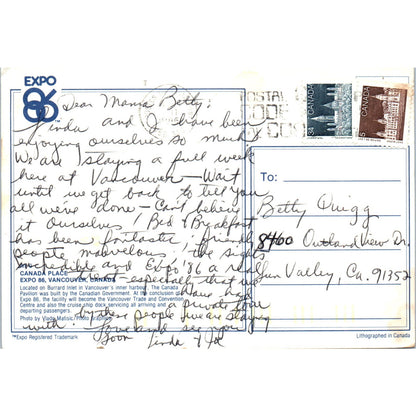 EXPO
86
TM
Dear Mama Betty:
Linda and I have been
enjoying ourselves so much!
We are staying a full week
here at Vancouver – Wait
until we get back to tell you
all we've done – Can't believe
it ourselves! Bed & Breakfast
has been fantastic; friendly
people, marvelous – the sights
incredible and Expo '86 a real
especially that we
have had
a private tour
by these people we are staying
with. Love and see you
Soon Linda & Jo
CANADA PLACE
EXPO 86, VANCOUVER, CANADA
Located on Burrard Inlet in Vancouver's inner harbour. The Canada
Pavilion was built by the Canadian Government. At the conclusion of
Expo 86, the facility will become the Vancouver Trade and Convention
Centre and also the cruise ship dock servicing all arriving and
departing passengers.
Photo by Vlado Matisic/Photo Graphics
™Expo Registered Trademark
CANADA
34
CANADA
5
POSTAL
CODE
To:
Betty Quigg
8460 Outland View Dr.
Sun Valley, Ca. 91352
Lithographed in Canada